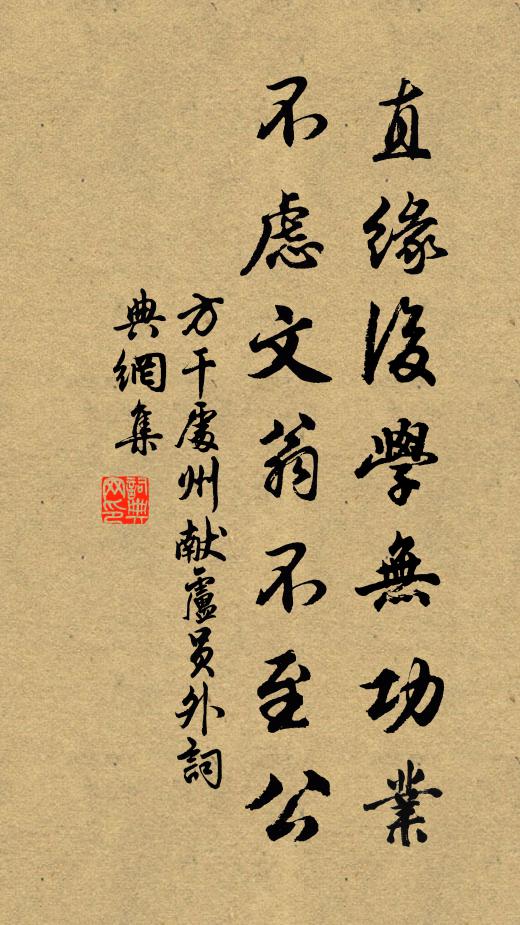 直緣後學無功業
不慮文翁不至公
方干處州献盧員外詞
典網集
詞典網印